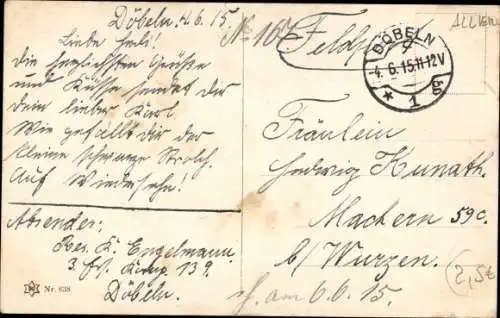 Döbeln. 4.6.15.
Liebe Hedi!
die herzlichsten Grüße
und Küsse sendet dir
dein lieber Karl
Wie gefällt dir der
kleine schwarze Strolch.
Auf Wiedersehn!
Absender:
Res. K. Engelmann.
3. Ers. Komp. 139.
Döbeln.
Nr. 638
DÖBELN
4. 6. 15. 11-12V
* 1
Fräulein
Hedwig Kunath.
Machern 59c.
b/ Wurzen.
am 6.6.15.
2,5€